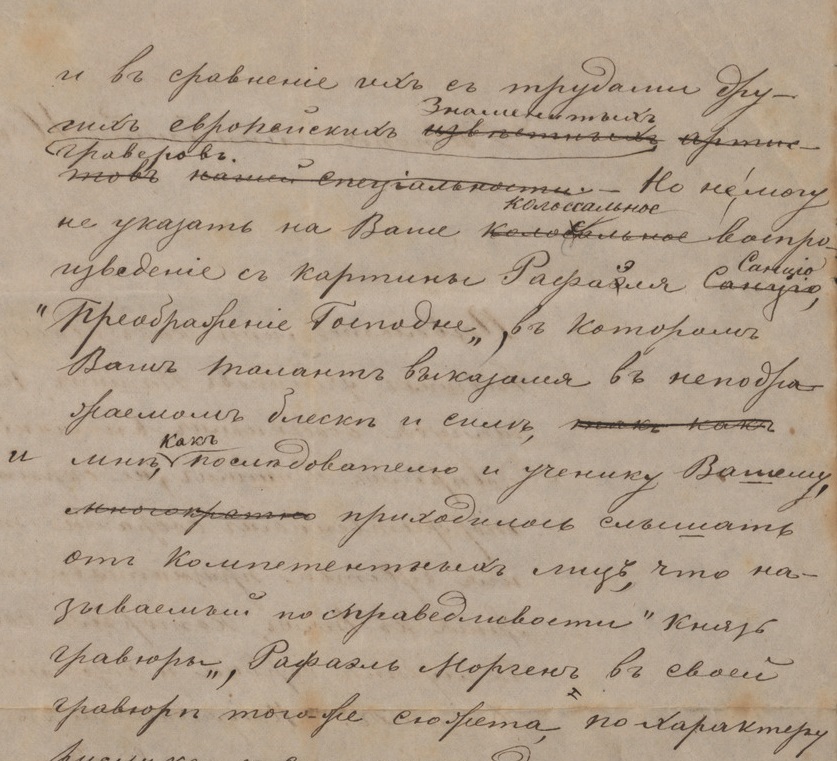 и въ сравненіе ихъ съ трудами дру-
Знаменитыхъ
гихъ европейскихъ извѣстныхъ артис-
граверовъ.
товъ нашей спеціальности. — Но не могу
колоссальное
не указать на Ваше колосальное воспро-
Санціо
изведеніе съ картины Рафаэля Санціо,
"Преображеніе Господне", въ которомъ
Вашъ талантъ выказался въ неподра-
жаемомъ блескѣ и силѣ, такъ какъ
какъ
и мнѣ, послѣдователю и ученику Вашему,
многократно приходилось слышать
отъ компетентныхъ лицъ, что на-
зываемый по справедливости "Князь
гравюры", Рафаэль Моргенъ въ своей
гравюрѣ того-же сюжета, по характеру